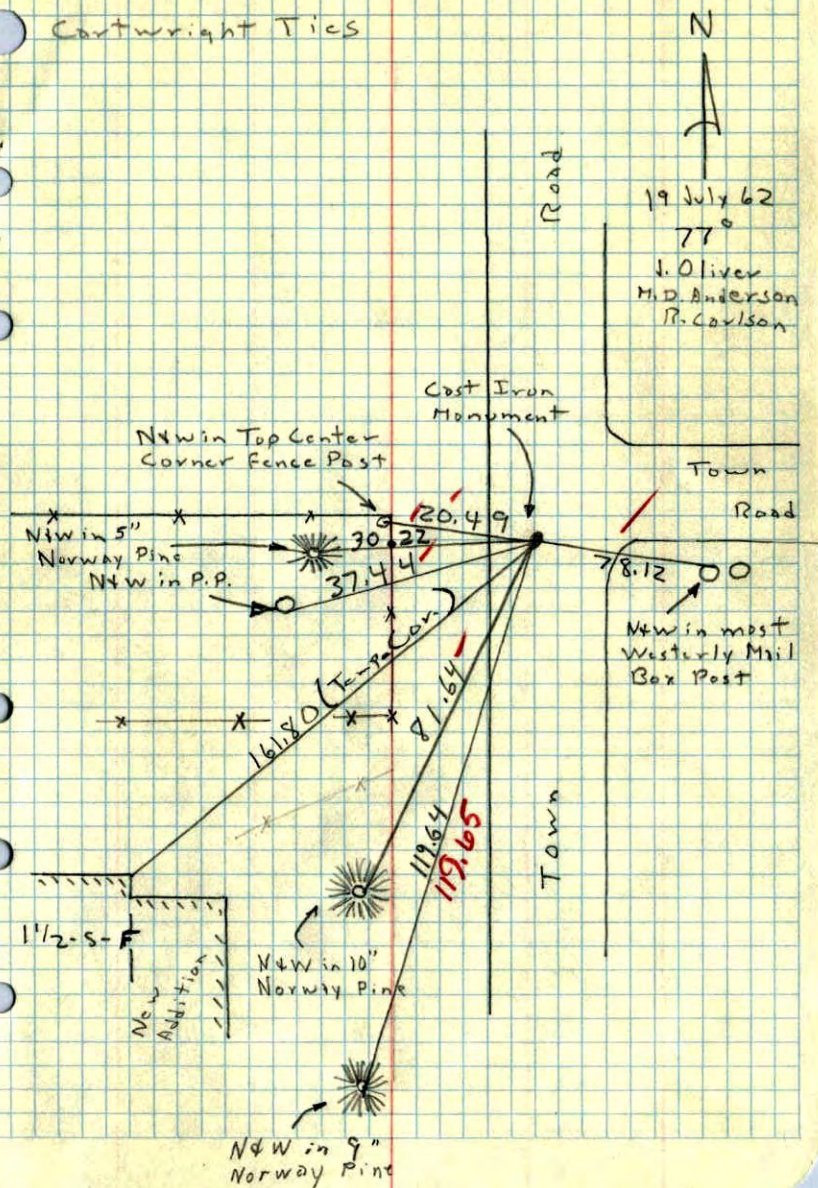 Cartwright Ties
N
19 July 62
77°
J. Oliver
M.D. Anderson
R. Carlson
Road
Cast Iron
Monument
N&W in Top Center
Corner Fence Post
Town
Road
20.49
N&W in 5"
Norway Pine
30.22
N&W in P.P.
37.44
78.12
N&W in most
Westerly Mail
Box Post
161.80 (Temp. Cor.)
81.64
119.64
119.65
Town
1 1/2-S-F
New
Addition
N&W in 10"
Norway Pine
N&W in 9"
Norway Pine